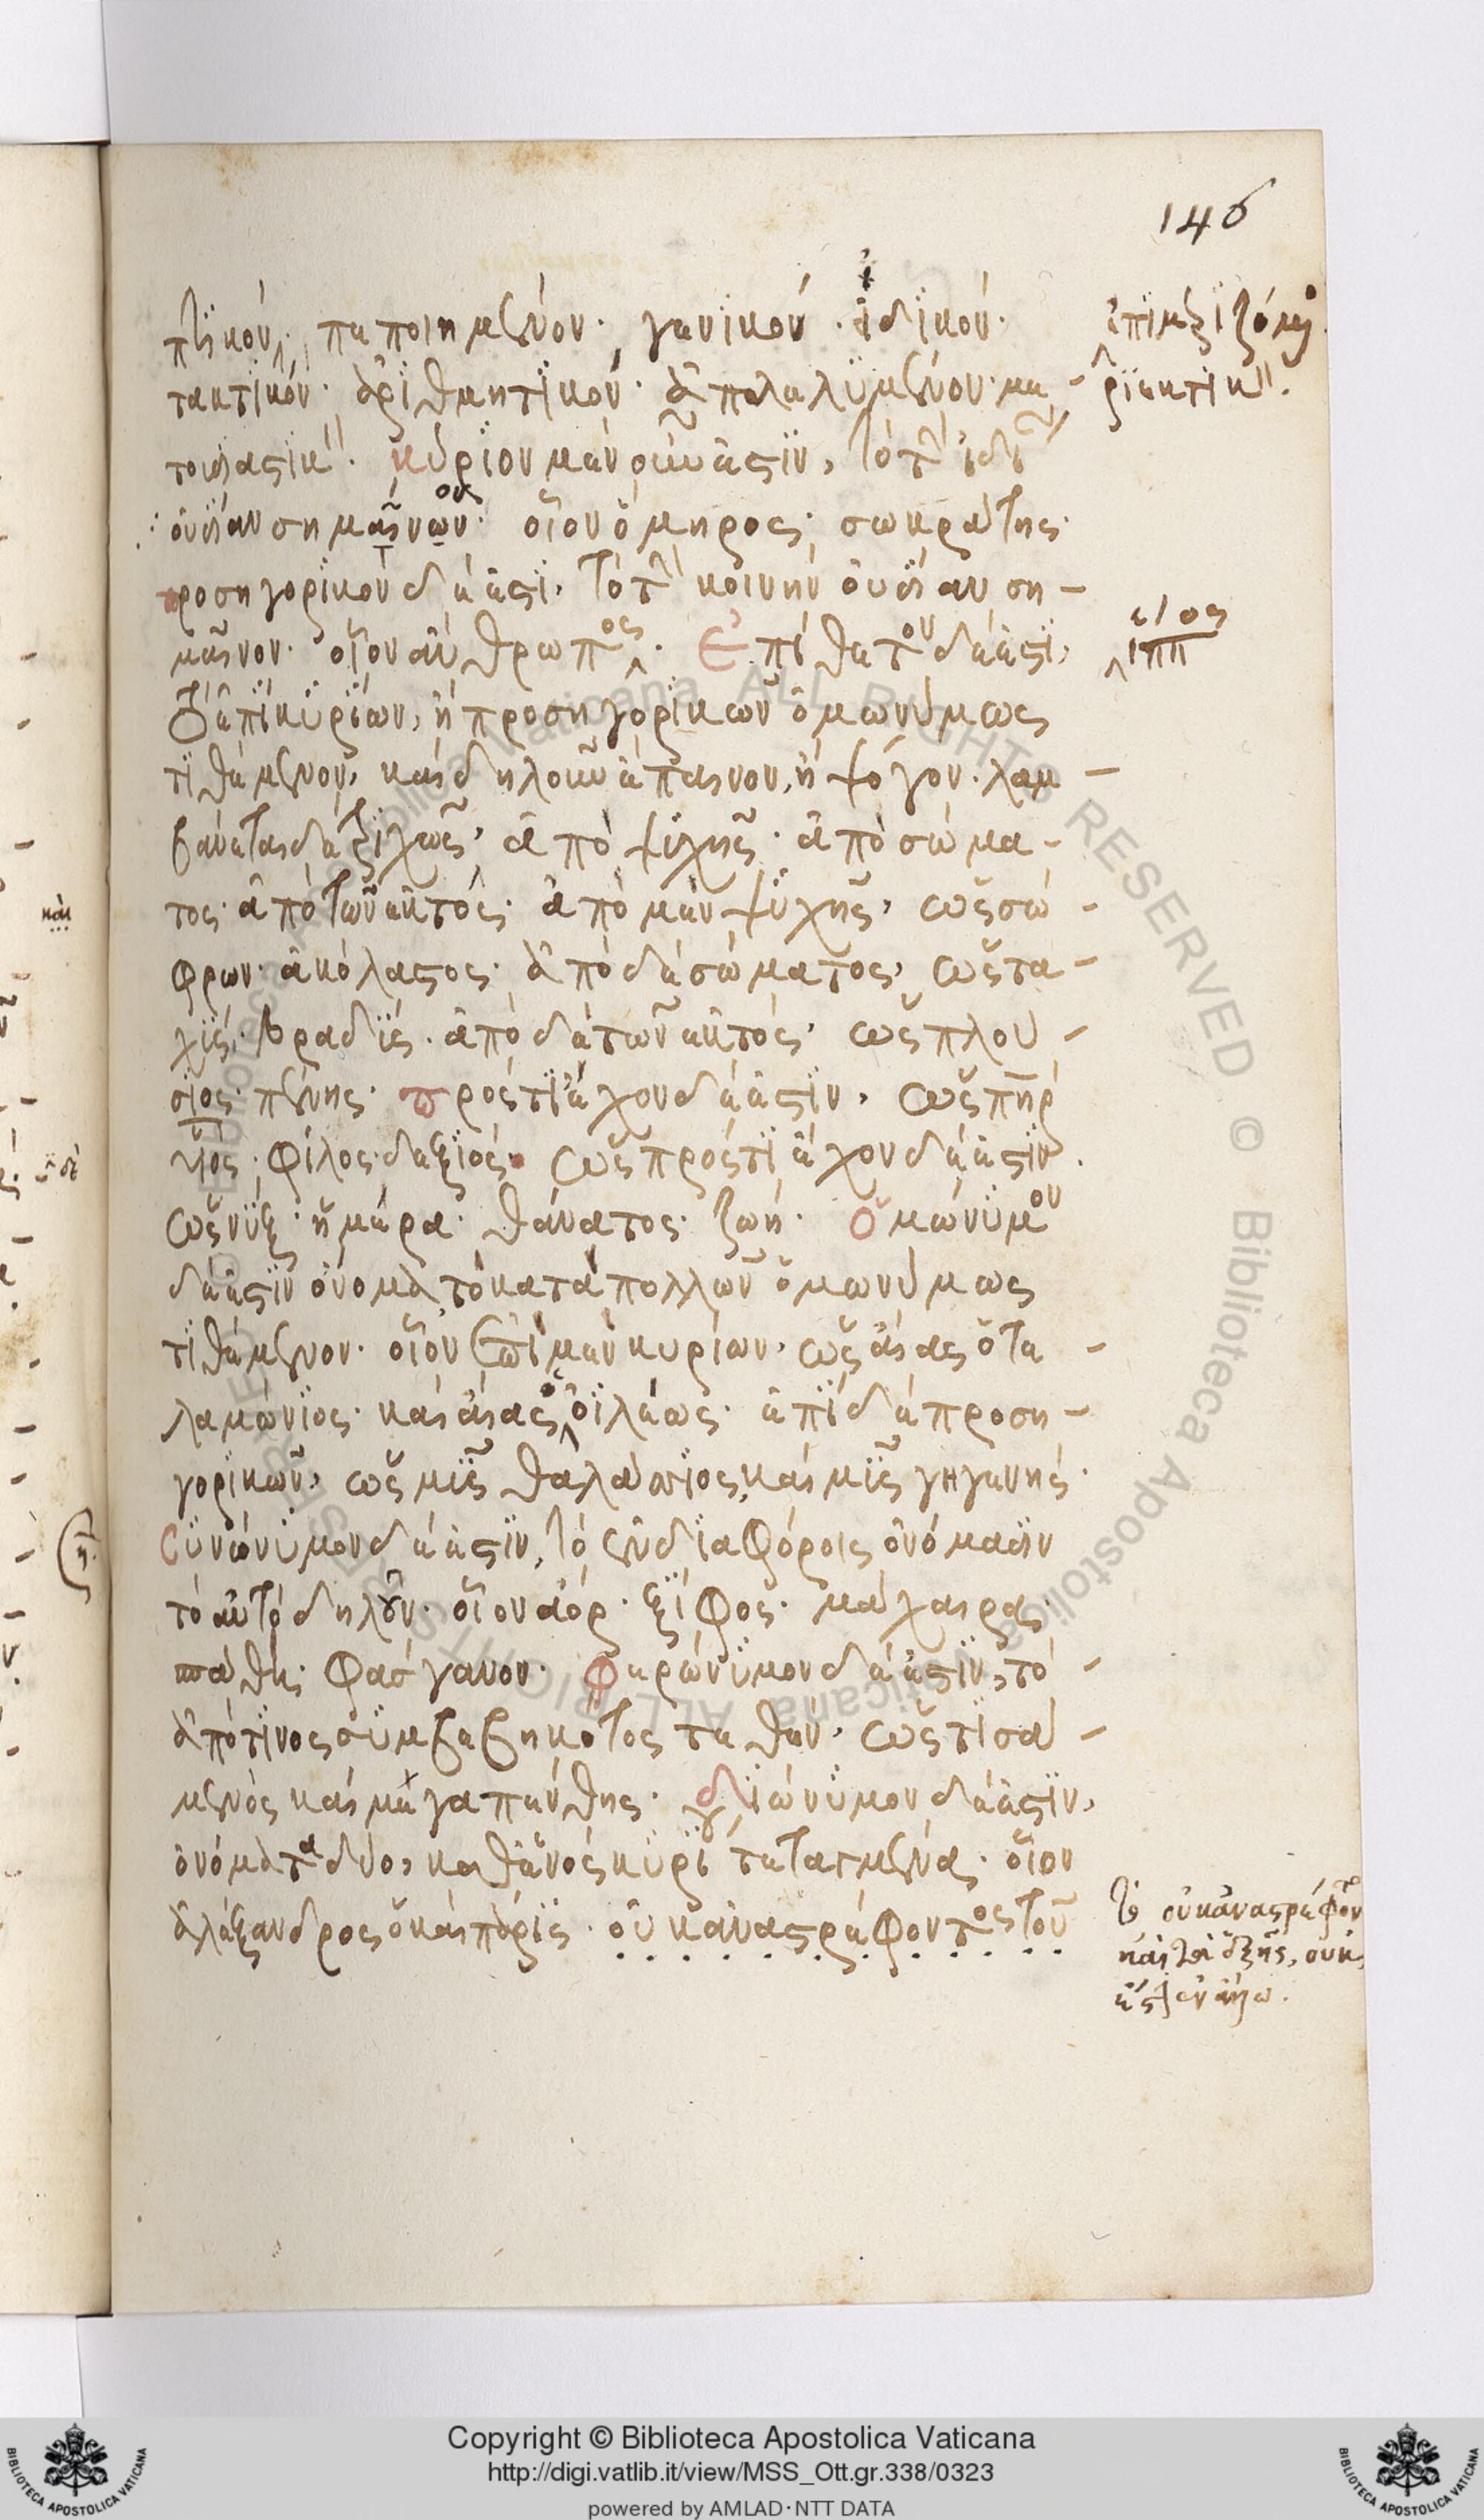 146
πτικόν· πεποιημένον· γενικόν· ἰδικόν·
ἐπιμεριζόμενον·
τακτικόν· ἀριθμητικόν· ἀπολελυμένον· με-
ριεκτικόν.
τουσιαστικόν. κύριον μὲν οὖν ἐστὶν, τὸ τὴν ἰδίαν
οὐσίαν σημαῖνον· οἷον ὅμηρος· σωκράτης·
προσηγορικὸν δέ ἐστι, τὸ τὴν κοινὴν οὐσίαν ση-
μαῖνον. οἷον ἄνθρωπος. ἐπίθετον δέ ἐστι,
ἵππος
τὸ ἐπὶ κυρίων, ἢ προσηγορικῶν ὁμωνύμως
τιθέμενον, καὶ δηλοῦν ἔπαινον, ἢ ψόγον. λαμ-
βάνεται δὲ τριχῶς, ἀπὸ ψυχῆς· ἀπὸ σώμα-
τος· ἀπὸ τῶν ἐκτός· ἀπὸ μὲν ψυχῆς, ὡς σώ-
φρων· ἀκόλαστος· ἀπὸ δὲ σώματος, ὡς τα-
χύς· βραδύς. ἀπὸ δὲ τῶν ἐκτὸς, ὡς πλού-
σιος· πένης· πρός τι ἔχον δέ ἐστιν, ὡς πηρ
υἱός· φίλος· δεξιός· ὡς πρός τι ἔχον δέ ἐστιν.
ὡς νύξ· ἡμέρα· θάνατος· ζωή. ὁμώνυμον
δέ ἐστιν ὄνομα τὸ κατὰ πολλῶν ὁμωνύμως
τιθέμενον. οἷον ἐπὶ μὲν κυρίων, ὡς αἴας ὁ τε-
λαμώνιος· καὶ αἴας ὁ ὀϊλέως· ἐπὶ δὲ προση-
γορικῶν, ὡς μῦς θαλάσσιος, καὶ μῦς γηγενής·
συνώνυμον δέ ἐστιν, τὸ ἐν διαφόροις ὀνόμασιν
τὸ αὐτὸ δηλοῦν· οἷον ἄορ· ξίφος· μάχαιρα·
σπάθη· φάσγανον· φερώνυμον δέ ἐστιν, τὸ
ἀπό τινος συμβεβηκότος τεθέν, ὡς τισα-
μενὸς καὶ μεγαπένθης· διώνυμον δέ ἐστιν,
ὀνόματα δύο, καθ' ἑνὸς κυρίου τεταγμένα· οἷον
ἀλέξανδρος ὁ καὶ πάρις· οὐκ ἀναστρέφοντος τοῦ
τὸ οὐκ ἀναστρέφον
καὶ τὰ ἑξῆς, οὐκ
Copyright © Biblioteca Apostolica Vaticana
http://digi.vatlib.it/view/MSS_Ott.gr.338/0323
powered by AMLAD·NTT DATA